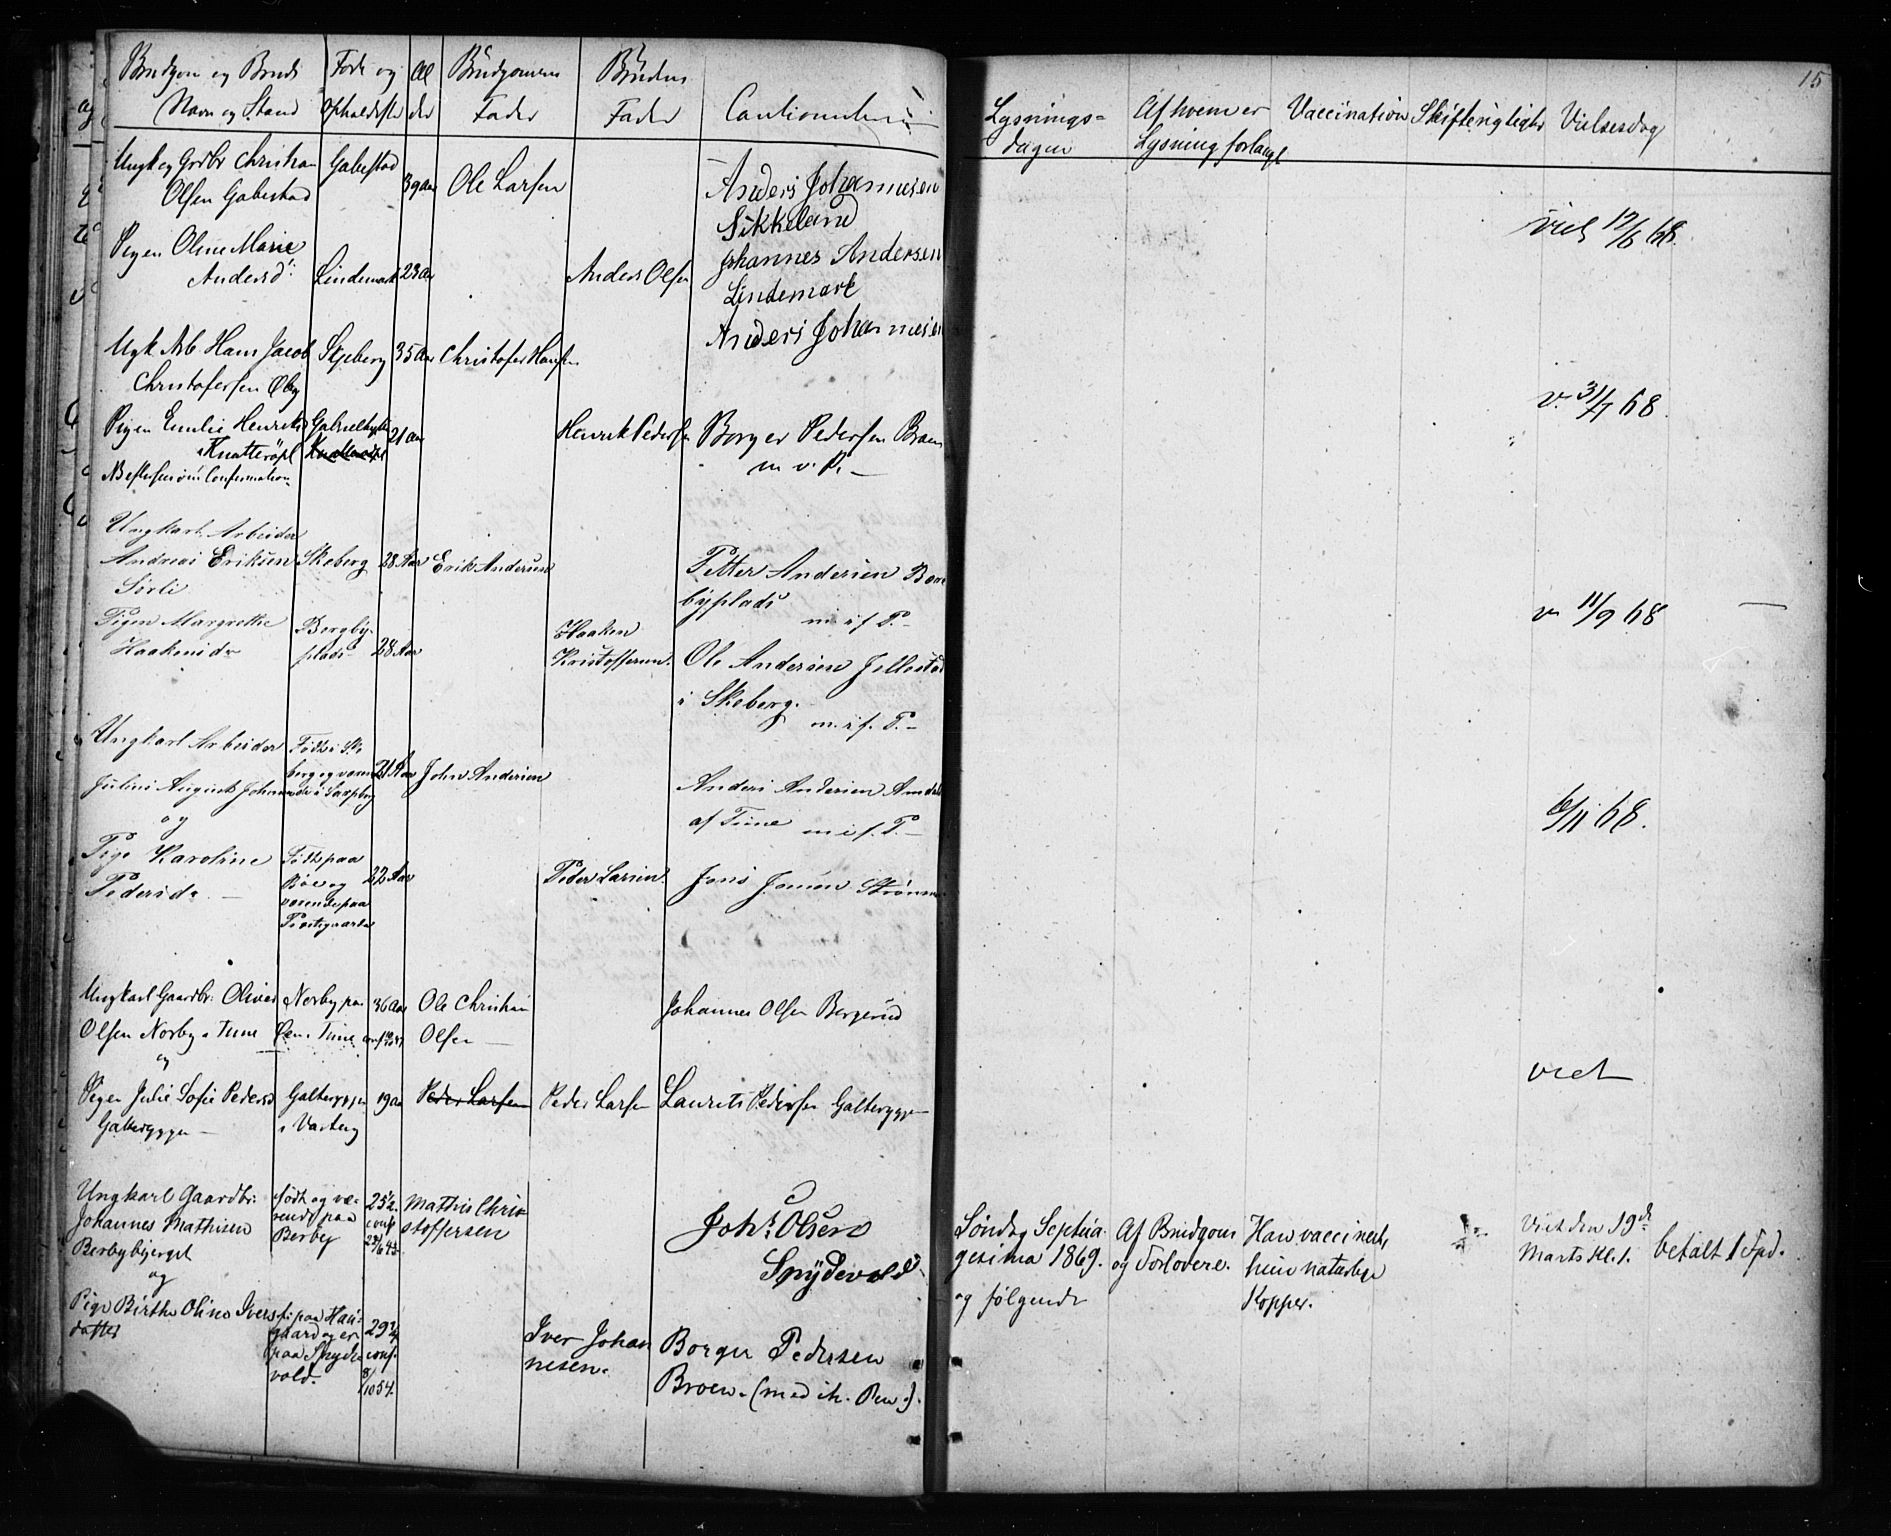 Brudgom og Bruds Navn og Stand
Føde og Opholdsste
Al der
Brudgomens Fader
Brudens Fader
Cautionisterne
Lysnings= dagen
Af hvem er Lysning forlangt
Vaccination
Skifterigtighed
Vielsesdag
15
Ungk og Grdbr Christian
Olsen Gabestad
Gabestad
39 aar
Ole Larsen
Anders Johannesen
Sikkeland
viet 12/6 68.
Pigen Oline Marie
Andersd.
Lindemark
23 aar
Anders Olsen
Johannes Andersen
Lindemark
Anders Johannesen
Ungk Arb Hans Jacob
Christofersen
Skjeberg
35 aar
Christofer Hansen
v. 31/7 68
Pigen Emilie Henriks
Knatterøpl
21 aar
Henrik Pedersen
Borger Pedersen Broen
m. v. P. —
NB Confirmation
Ungkarl Arbeider
Andreas Eriksen
Sørli
Skeberg
28 Aar
Erik Andersen
Petter Andersen
byplads
m. i f. P. —
v 11/9 68
Pigen Margrethe
Haakensd.
Bergby-
plads
28 Aar
Haaken
Kristoffersen.
Ole Andersen Jellestad
i Skeberg.
m. i f. P. —
Ungkarl Arbeider
Julius August Johan
og
Født i Ske
berg og væren
de i Sarpsborg
21 Aar
John Andersen
Anders Andersen
af Tune m i f. P. —
6/11 68.
Pige Karoline
Pedersd. —
Født paa
Røe og
værende paa
Prestegaarden
22 Aar
Peder Larsen.
Jens Jensen
Ungkarl Gaardbr: Oliver
Olsen Norby i Tune
og
Norby paa
Øen i Tune
36 Aar
Ole Christian
Olsen —
Johannes Olsen Bergerud
viet
Pigen Julie Sofie Pedersd
Galterygge —
Galterygge
i Varteig
19 aar
Peder Larsen
Peder Larsen
Laurits Pedersen Galterygge
Ungkarl Gaardbr:
Johannes Mathisen
Berbybjerget
og
født og væ-
rende paa
Berby
25 1/2.
conf
Mathis Chri-
stoffersen
Joh.s Olsen
Snydevold
Søndag Septua-
gesima 1869.
og følgende
Af Brudgom
og Forlovere.
Han vaccineret,
hun naturlige
Kopper.
Viet den 19de
Marts Kl. 1.
betalt 1 Spd.
Pige Birthe Oline Ivers
datter
f. paa Hau-
gaard og er
paa Snyde-
vold.
29 3/4
conf.
8/10 54.
Iver Johan
nesen.
Borger Pedersen
Broen. (med ih. Pen.).